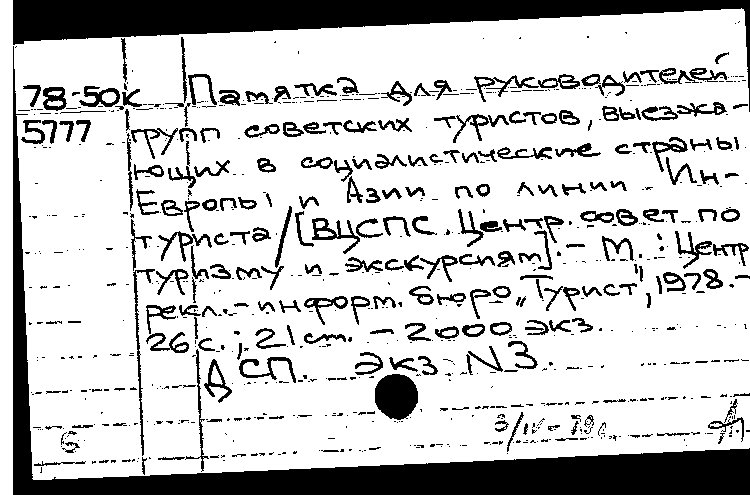 78-50к Памятка для руководителей
5777 групп советских туристов, выезжа-
ющих в социалистические страны
Европы и Азии по линии "Ин-
туриста / [ВЦСПС. Центр. совет по
туризму и экскурсиям]. - М. : Центр
рекл.-информ. бюро „Турист", 1978.-
26 с. ; 21 см. - 2000 экз.
ДСП. Экз N3.
3/IV-79г.
6